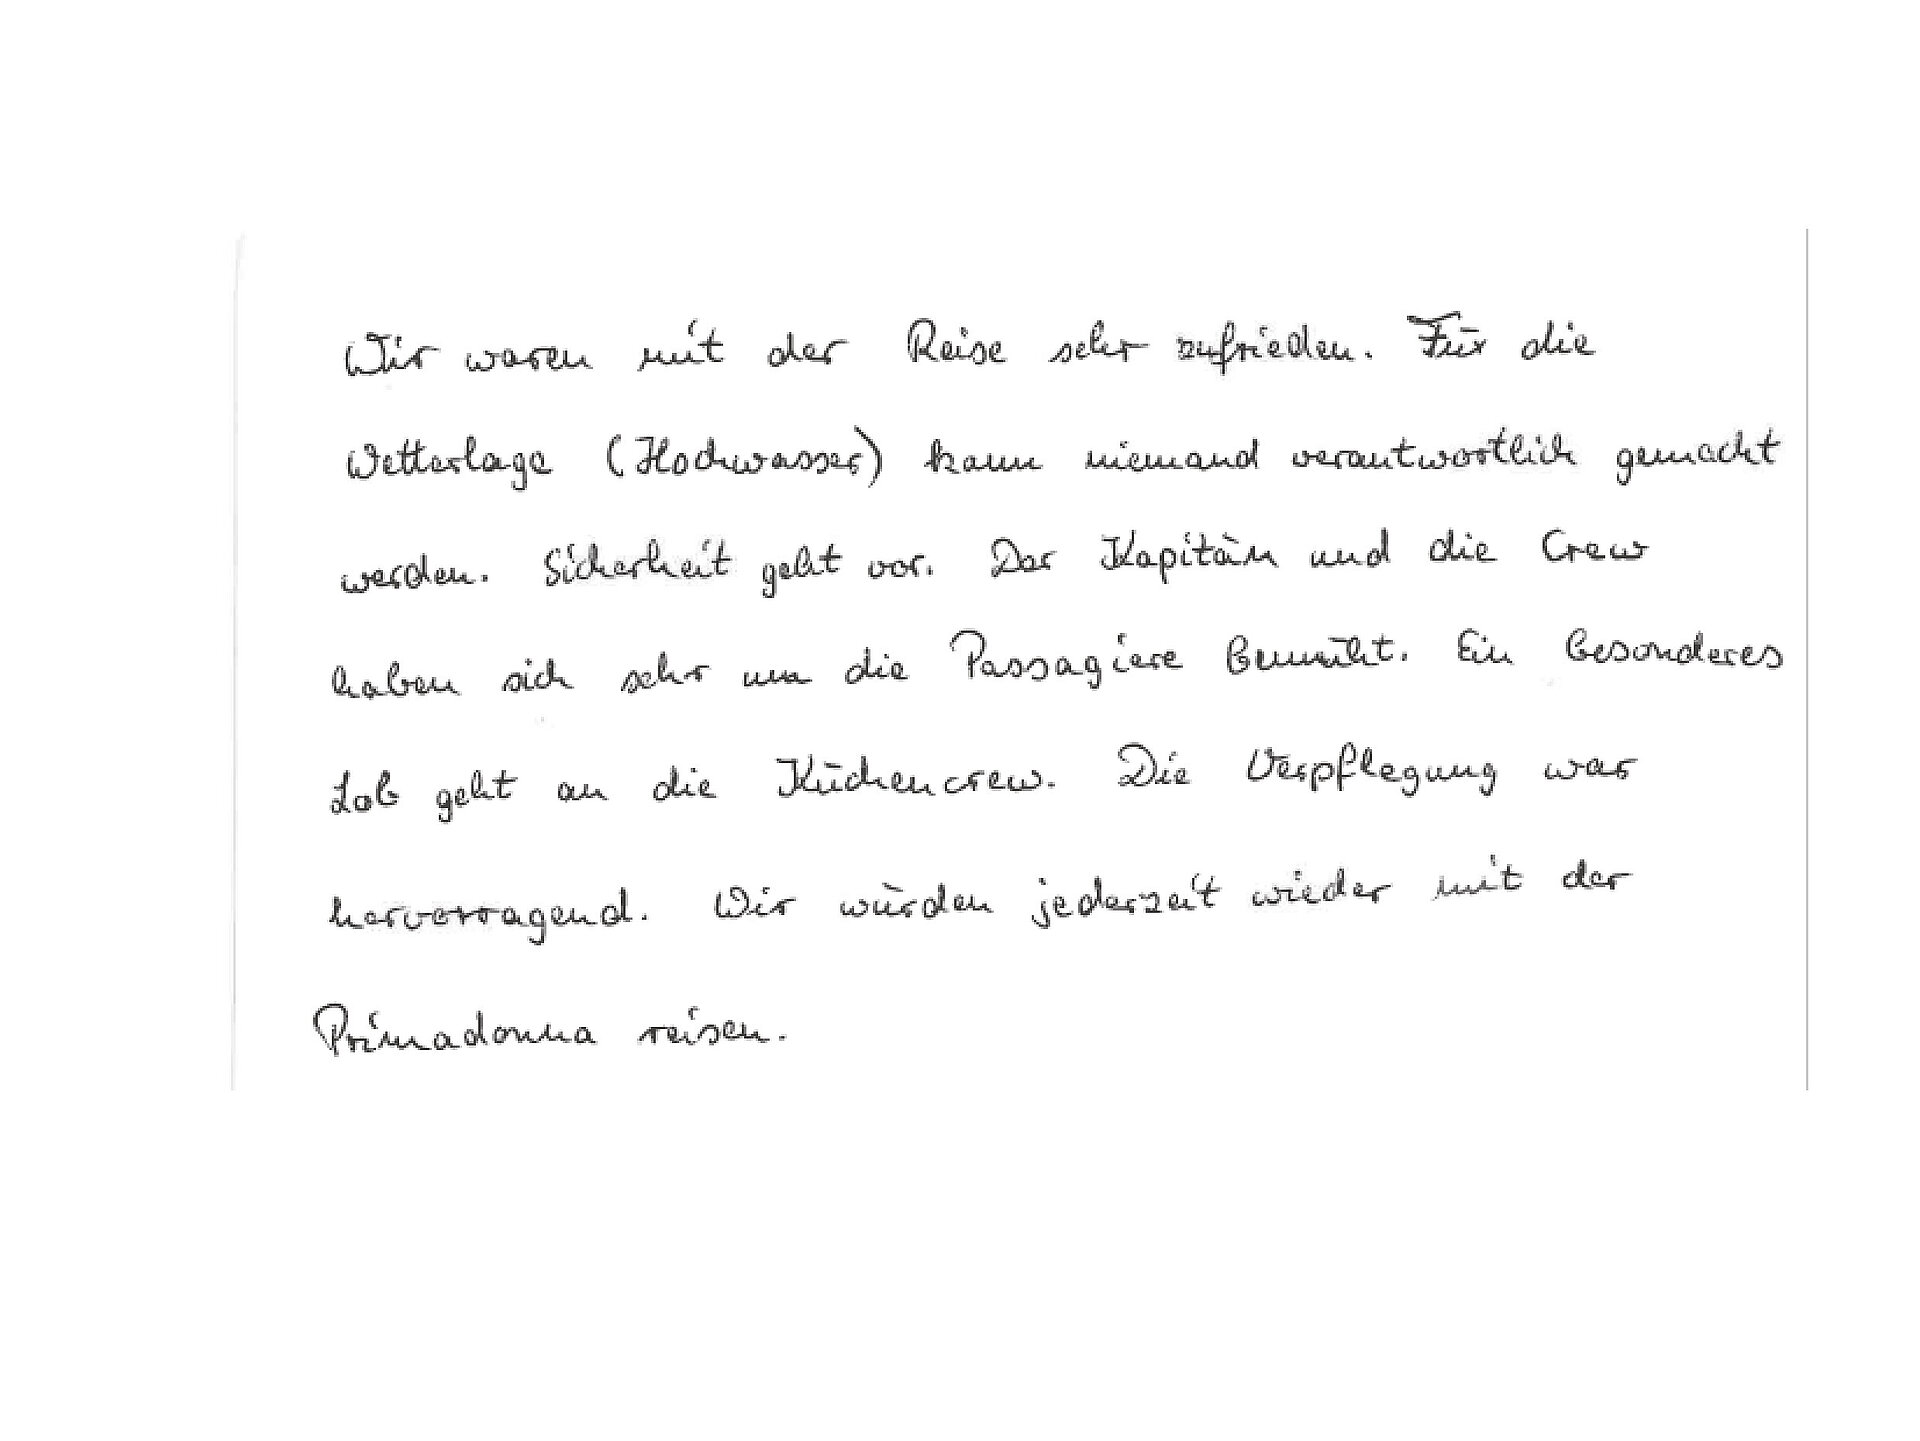 Wir waren mit der Reise sehr zufrieden. Für die
Wetterlage (Hochwasser) kann niemand verantwortlich gemacht
werden. Sicherheit geht vor. Der Kapitän und die Crew
haben sich sehr um die Passagiere bemüht. Ein besonderes
Lob geht an die Küchencrew. Die Verpflegung war
hervorragend. Wir würden jederzeit wieder mit der
Primadonna reisen.